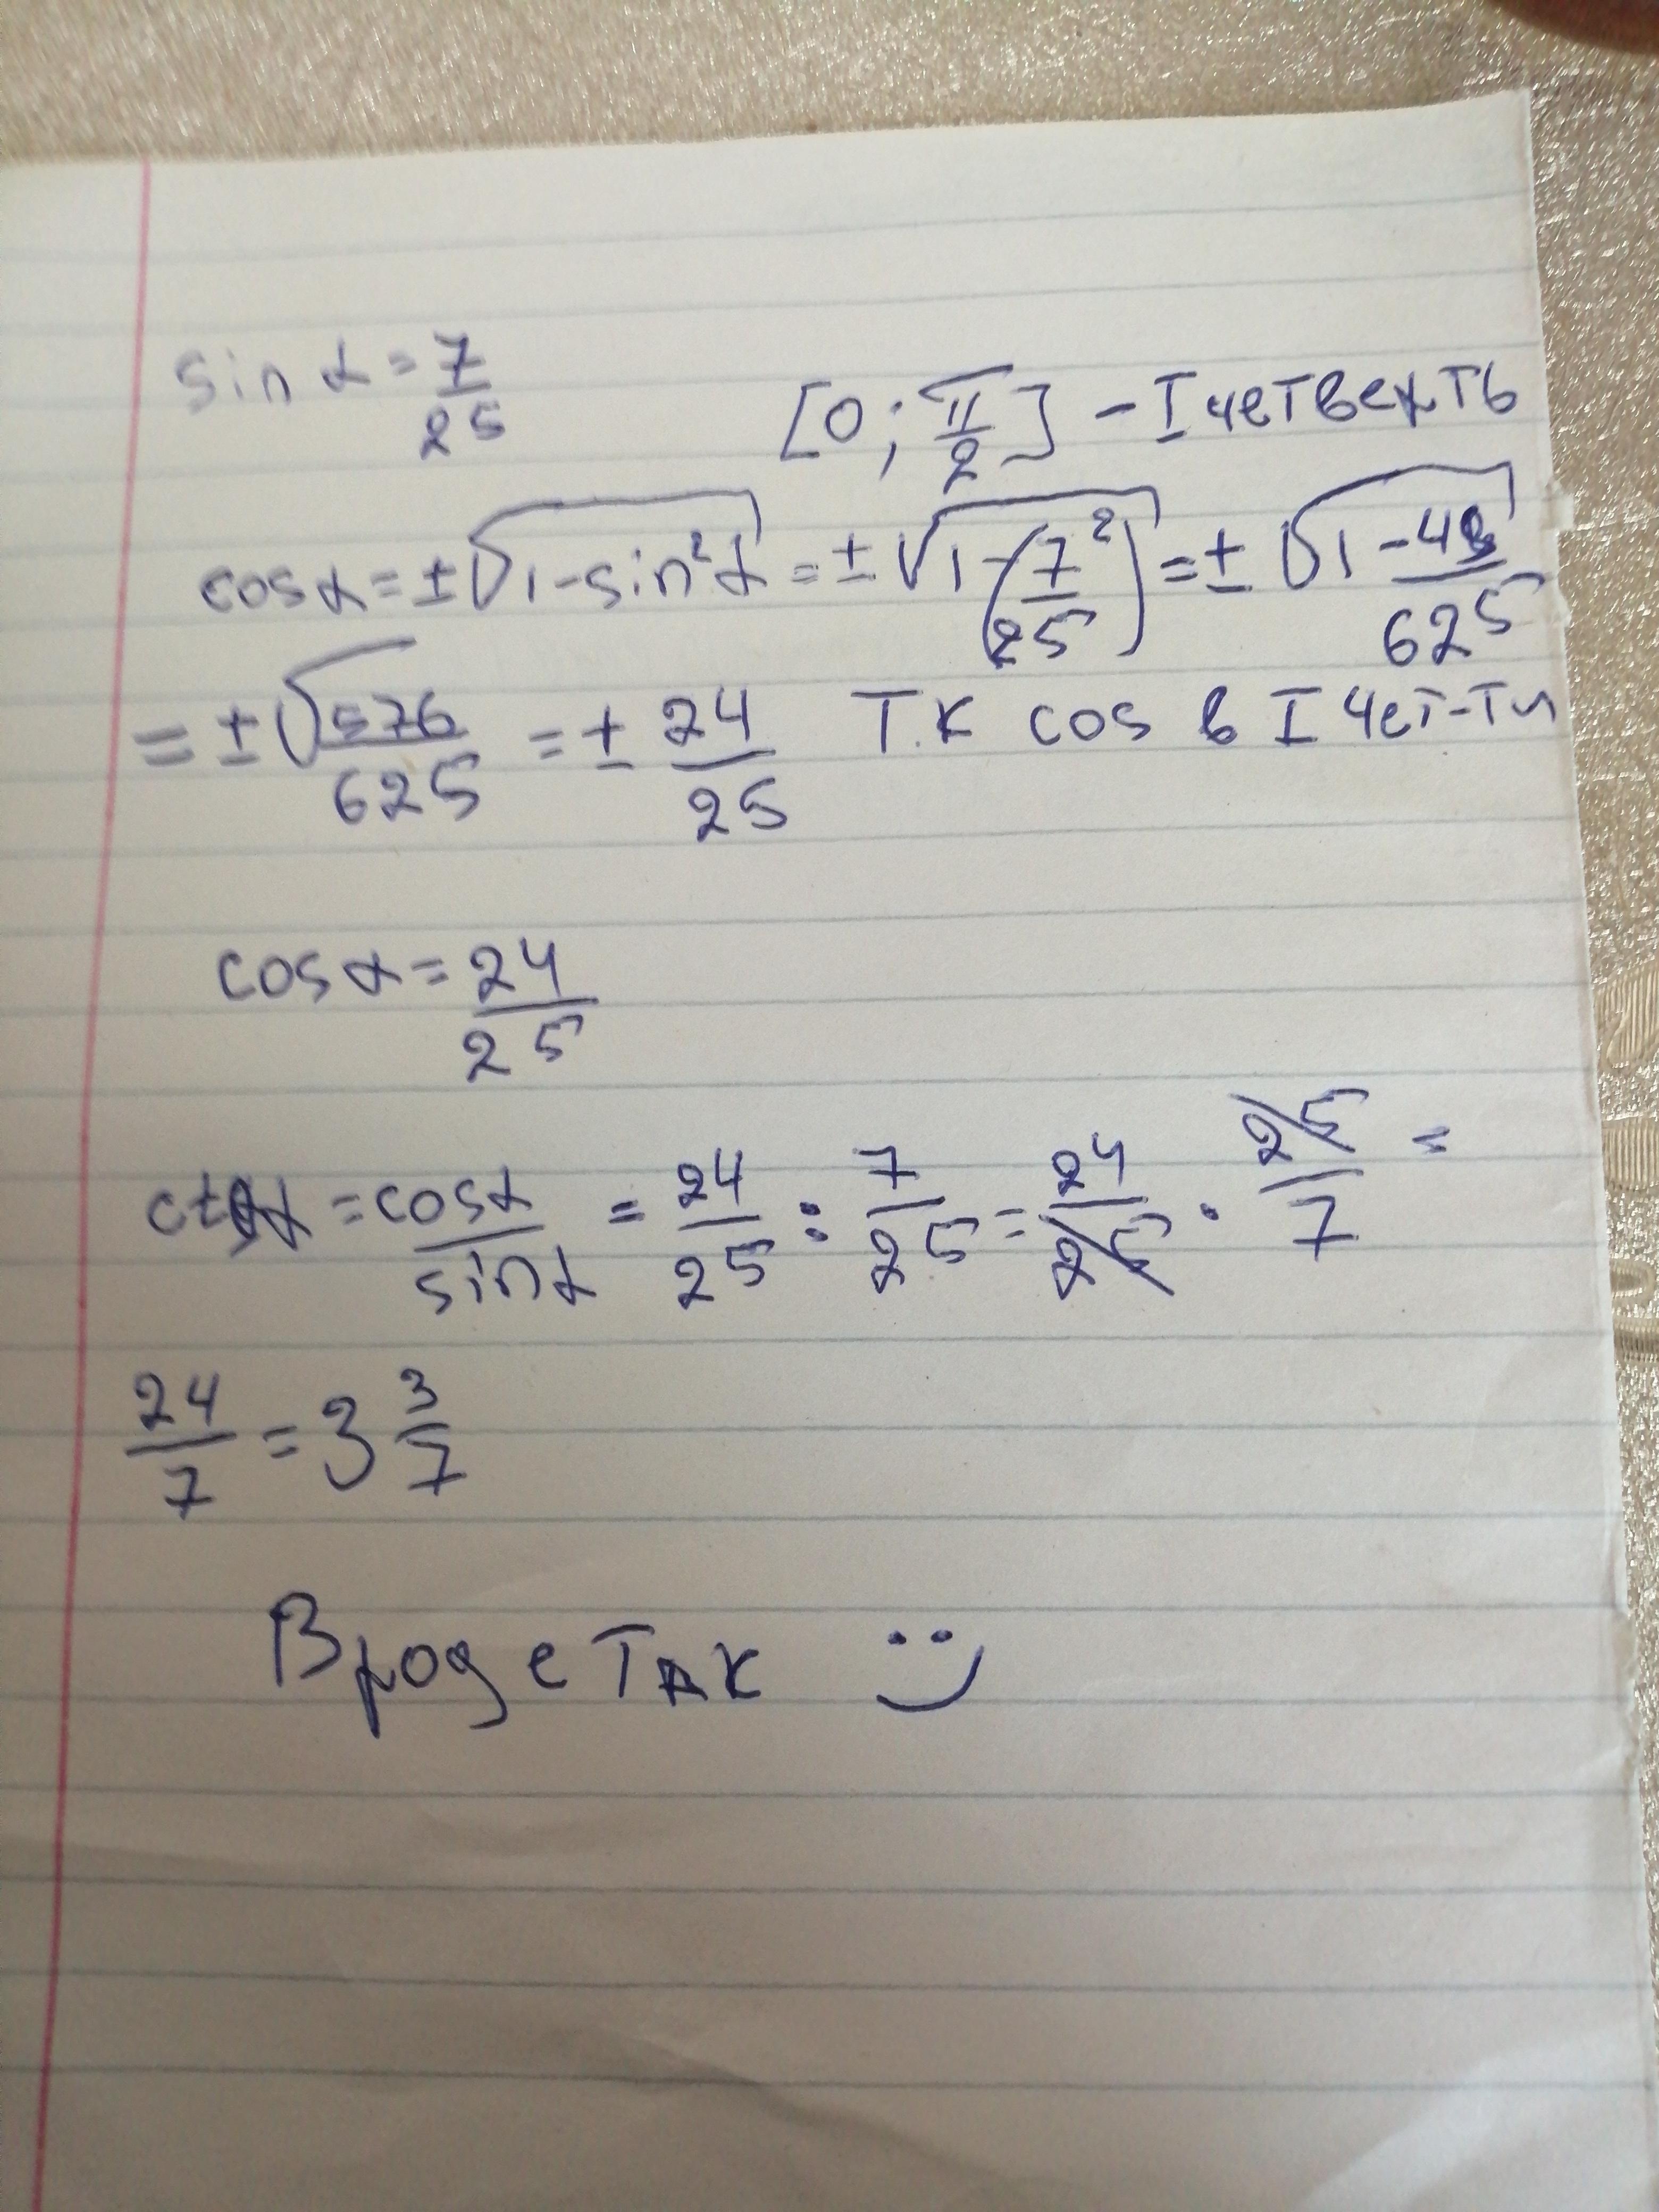 sin α = 7/25
[0; π/2] - I четверть
cos α = ±√(1 - sin² α) = ±√(1 - (7/25)²) = ±√(1 - 49/625)
= ±√(576/625) = ± 24/25 Т.К cos в I чет-ти
cos α = 24/25
ctg α = cos α/sin α = 24/25 : 7/25 = 24/25 · 25/7 =
24/7 = 3 3/7
Вроде так :)